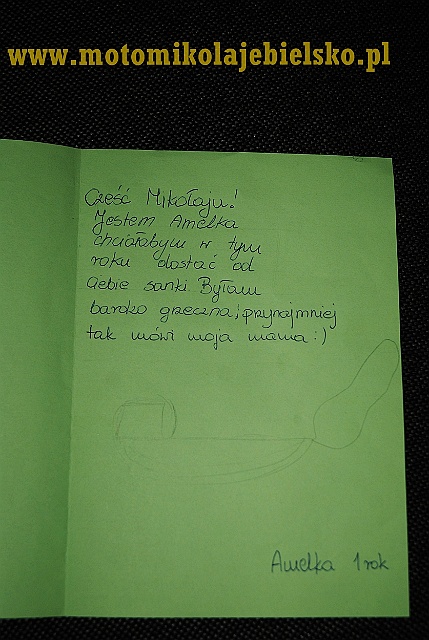 www.motomikolajebielsko.pl
Cześć Mikołaju!
Jestem Amelka
chciałabym w tym
roku dostać od
Ciebie sanki. Byłam
bardzo grzeczna, przynajmniej
tak mówi moja mama :)
Amelka 1 rok